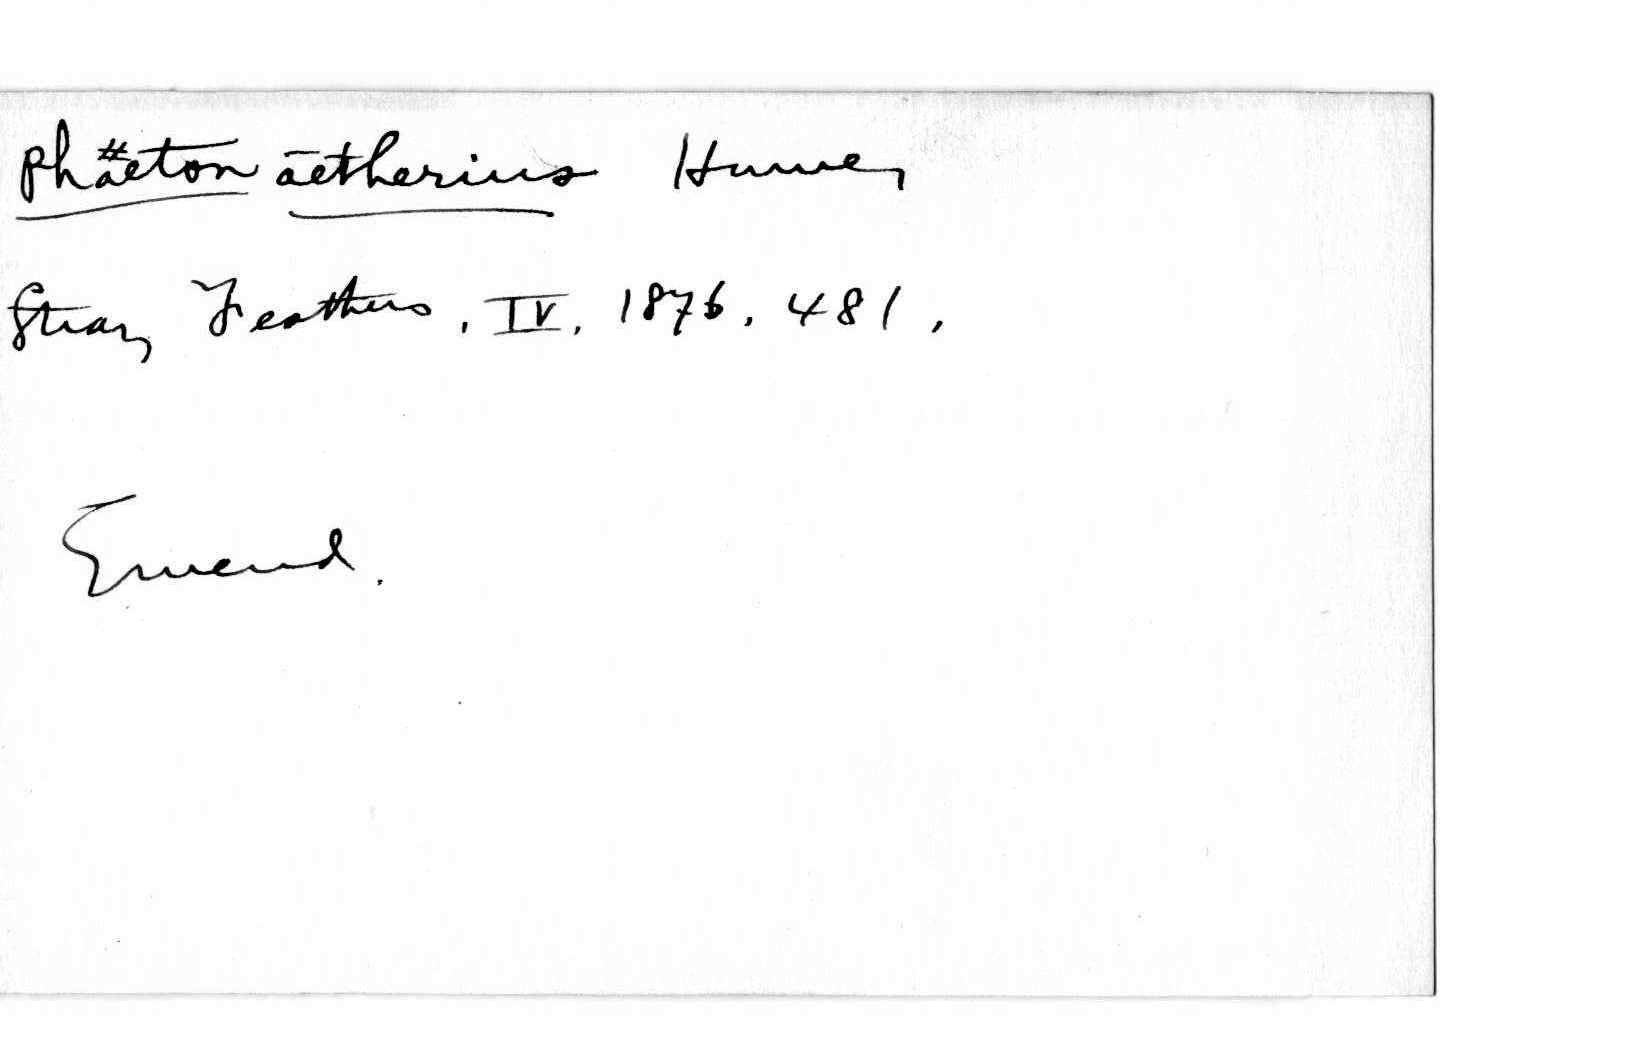 Phäeton āetherius Hume,
Stray Feathers, IV, 1876, 481,
Emend.